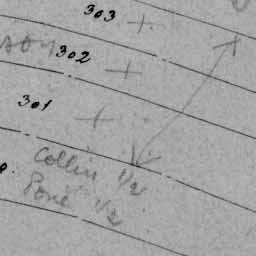 303
302
301
Collin 1/2
Pone 1/2